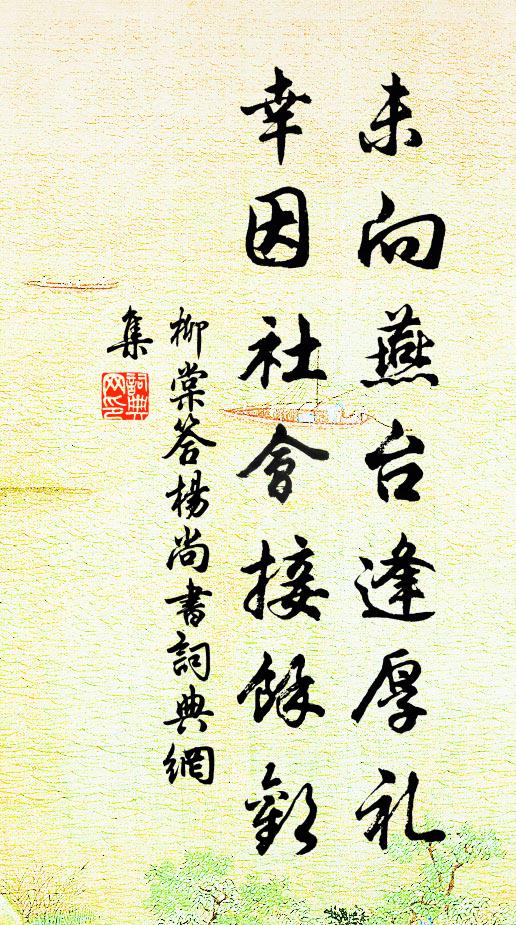 未向燕台逢厚礼
幸因社會接餘歡
柳棠答楊尚書詞典網
集
詞典
网印